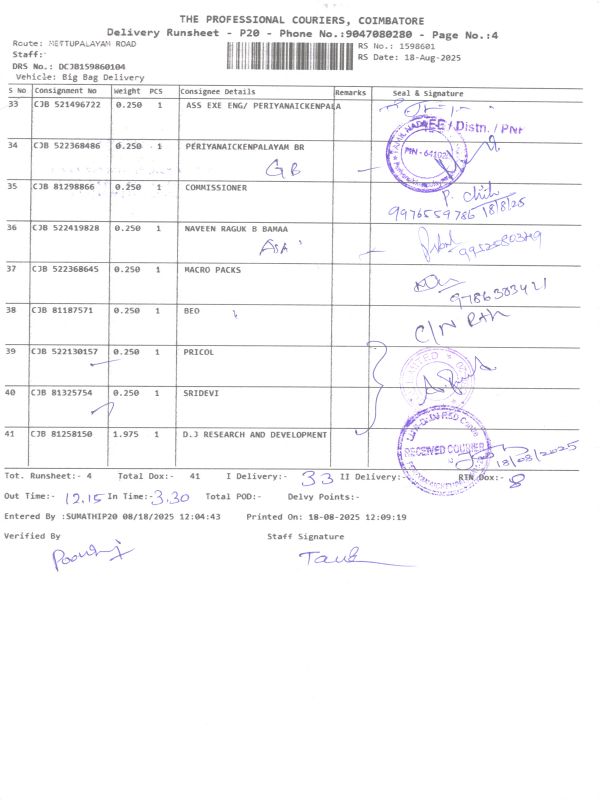 THE PROFESSIONAL COURIERS, COIMBATORE
Delivery Runsheet - P20 - Phone No.:9047080280 - Page No.:4
Route: METTUPALAYAM ROAD RS No.: 1598601
Staff: RS Date: 18-Aug-2025
DRS No.: DCJB159860104
Vehicle: Big Bag Delivery
S No Consignment No Weight PCS Consignee Details Remarks Seal & Signature
33 CJB 521496722 0.250 1 ASS EXE ENG/ PERIYANAICKENPALA
EE / Distn. / PNP
34 CJB 522368486 0.250 1 PERIYANAICKENPALAYAM BR
GB
35 CJB 81298866 0.250 1 COMMISSIONER
9976559786 18/8/25
36 CJB 522419828 0.250 1 NAVEEN RAGUK B BAMAA
37 CJB 522368645 0.250 1 MACRO PACKS
9786303421
38 CJB 81187571 0.250 1 BEO
39 CJB 522130157 0.250 1 PRICOL
40 CJB 81325754 0.250 1 SRIDEVI
41 CJB 81258150 1.975 1 D.J RESEARCH AND DEVELOPMENT
RECEIVED COURIER
18/08/2025
Tot. Runsheet:- 4 Total Dox:- 41 I Delivery:- 33 II Delivery:- RTN Dox:- 8
Out Time:- 12.15 In Time:- 3.30 Total POD:- Delvy Points:-
Entered By :SUMATHIP20 08/18/2025 12:04:43 Printed On: 18-08-2025 12:09:19
Verified By Staff Signature